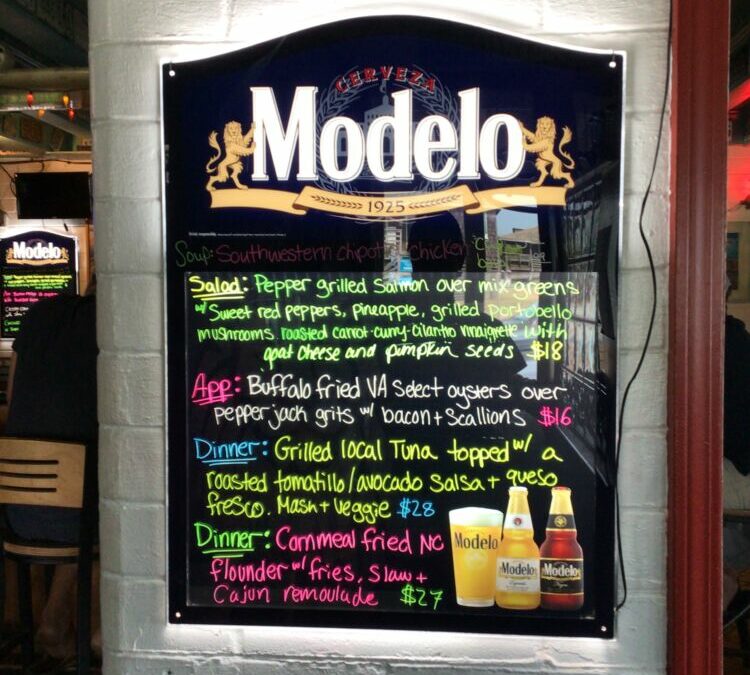 CERVEZA
Modelo
1925
Soup: Southwestern chipotle chicken
Salad: Pepper grilled Salmon over mix greens
w/ Sweet red peppers, pineapple, grilled portobello
mushrooms. roasted carrot-curry-cilantro vinaigrette with
goat cheese and pumpkin seeds $18
App: Buffalo fried VA Select oysters over
pepper jack grits w/ bacon + Scallions $16
Dinner: Grilled local Tuna topped w/ a
roasted tomatillo/avocado salsa + queso
fresco. Mash + Veggie $28
Dinner: Cornmeal fried NC
flounder w/ fries, Slaw +
Cajun remoulade $27
Modelo
Modelo
Modelo
Modelo